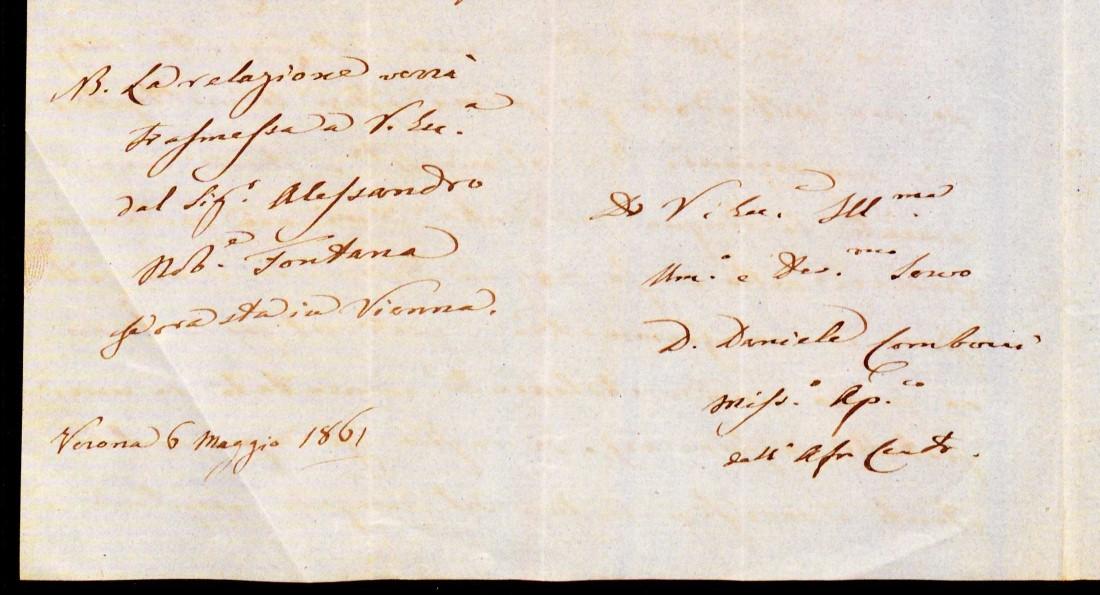 NB. La relazione verrà
trasmessa a V. Ecc.a
dal Sig.r Alessandro
Nob.e Fontana
che ora sta in Vienna.
Verona 6 Maggio 1861
Di V. Ecc. Ill.ma
Um.o e Dev.mo Servo
D. Daniele Comboni
Miss.o Ap.co
dell' Afr Centr.